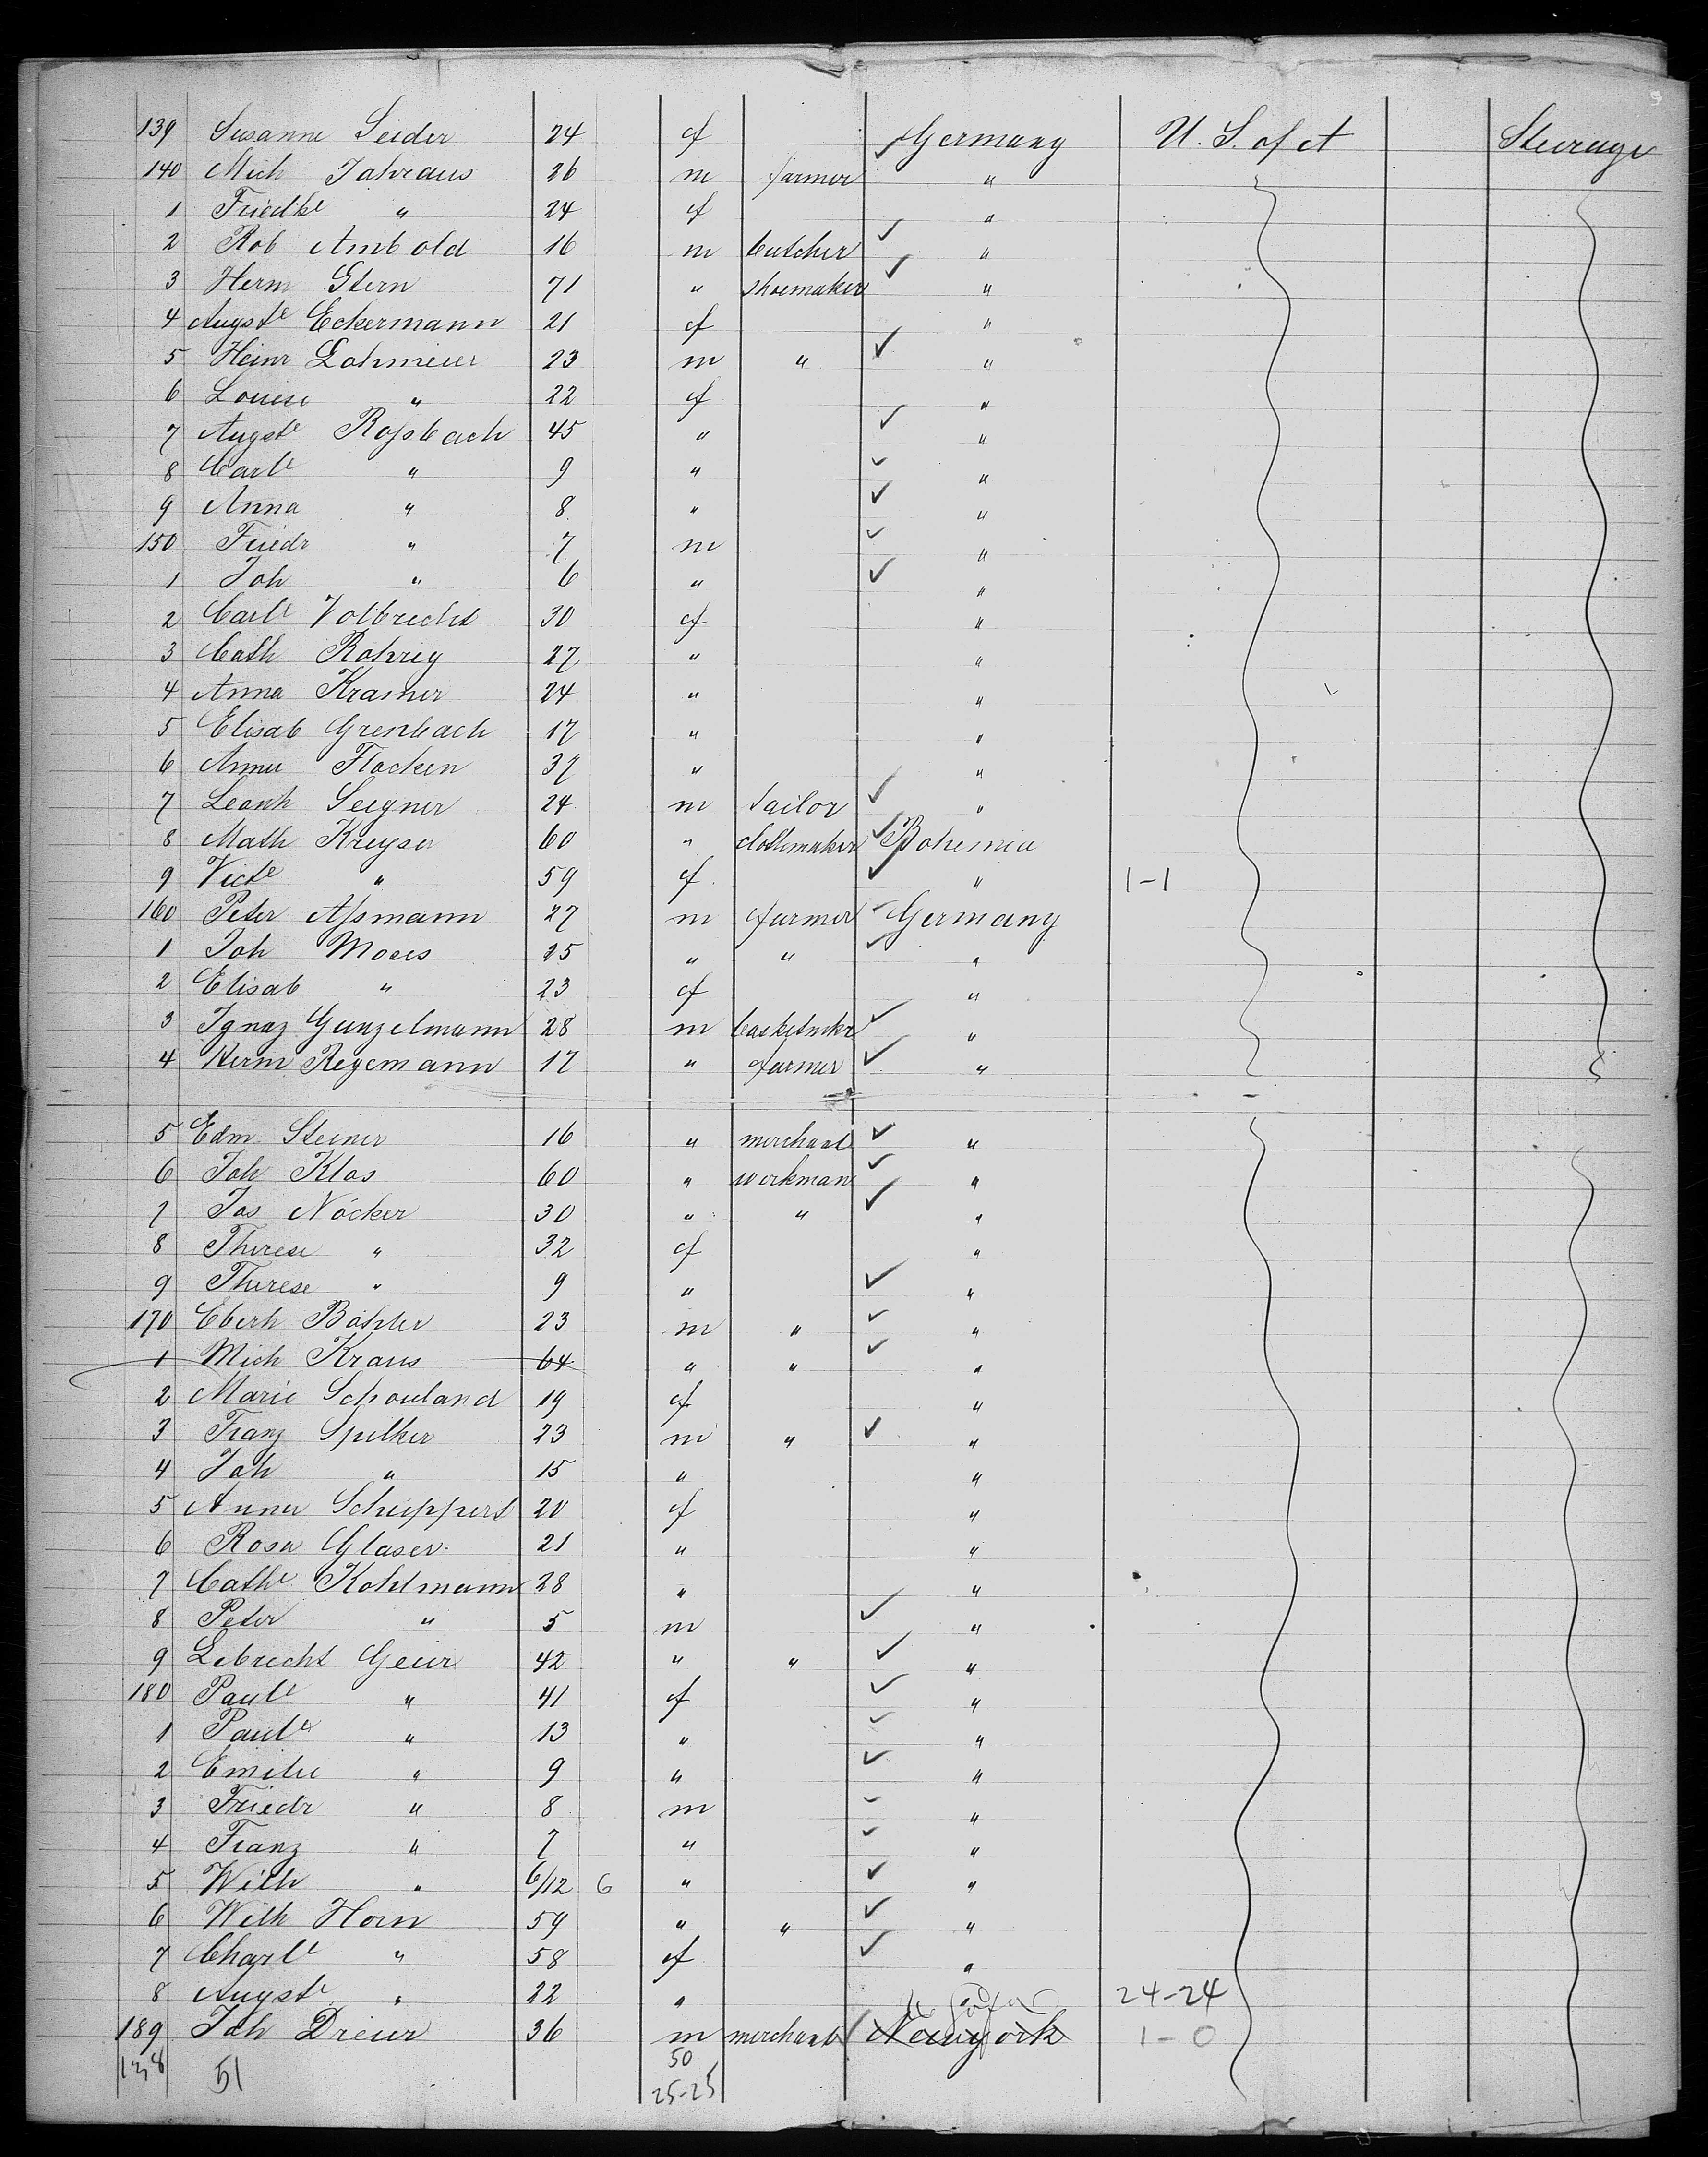 139 Susanne Seider 24 f Germany U. S. of A Steerage
140 Mich Jahraus 26 m farmer "
1 Friedke " 24 f "
2 Rob Ambold 16 m butcher "
3 Herm Stern 71 " shoemaker "
4 Augste Eckermann 21 f "
5 Heinr Lohmeier 23 m " "
6 Louise " 22 f "
7 Augste Roſsbach 45 " "
8 Carle " 9 " "
9 Anna " 8 " "
150 Friedr " 7 m "
1 Joh " 6 " "
2 Carle Volbrecht 30 f "
3 Cath Rohrig 27 " "
4 Anna Kramer 24 " "
5 Elisab Grenbach 17 " "
6 Anna Flocken 37 " "
7 Leonh Seegner 24 m tailor "
8 Math Kreyser 60 " clothmaker Bohemia
9 Victe " 59 f " 1-1
160 Peter Aſsmann 27 m farmer Germany
1 Joh Moees 25 " " "
2 Elisab " 23 f "
3 Ignaz Gunzelmann 28 m basketmkr "
4 Herm Regemann 17 " farmer "
5 Edm Steiner 16 " merchant "
6 Joh Klos 60 " workman "
7 Jos Nöcker 30 " " "
8 Therese " 32 f "
9 Therese " 9 " "
170 Eberh Böhler 23 m " "
1 Mich Kraus 64 " " "
2 Marie Schouland 19 f "
3 Franz Spilker 23 m " "
4 Joh " 15 " "
5 Anna Scheppers 20 f "
6 Rosa Glaser 21 " "
7 Cathe Kohlmann 28 " "
8 Peter " 5 m "
9 Lebrecht Geier 42 " " "
180 Paule " 41 f "
1 Paule " 13 " "
2 Emilie " 9 " "
3 Friedr " 8 m "
4 Franz " 7 " "
5 Wilh " 6/12 6 " "
6 Wilh Horn 59 " " "
7 Charle " 58 f "
8 Augste " 22 " " 24-24
189 Joh Dreier 36 m merchant Newyork U. S. of A 1-0
138 51 50
25-25